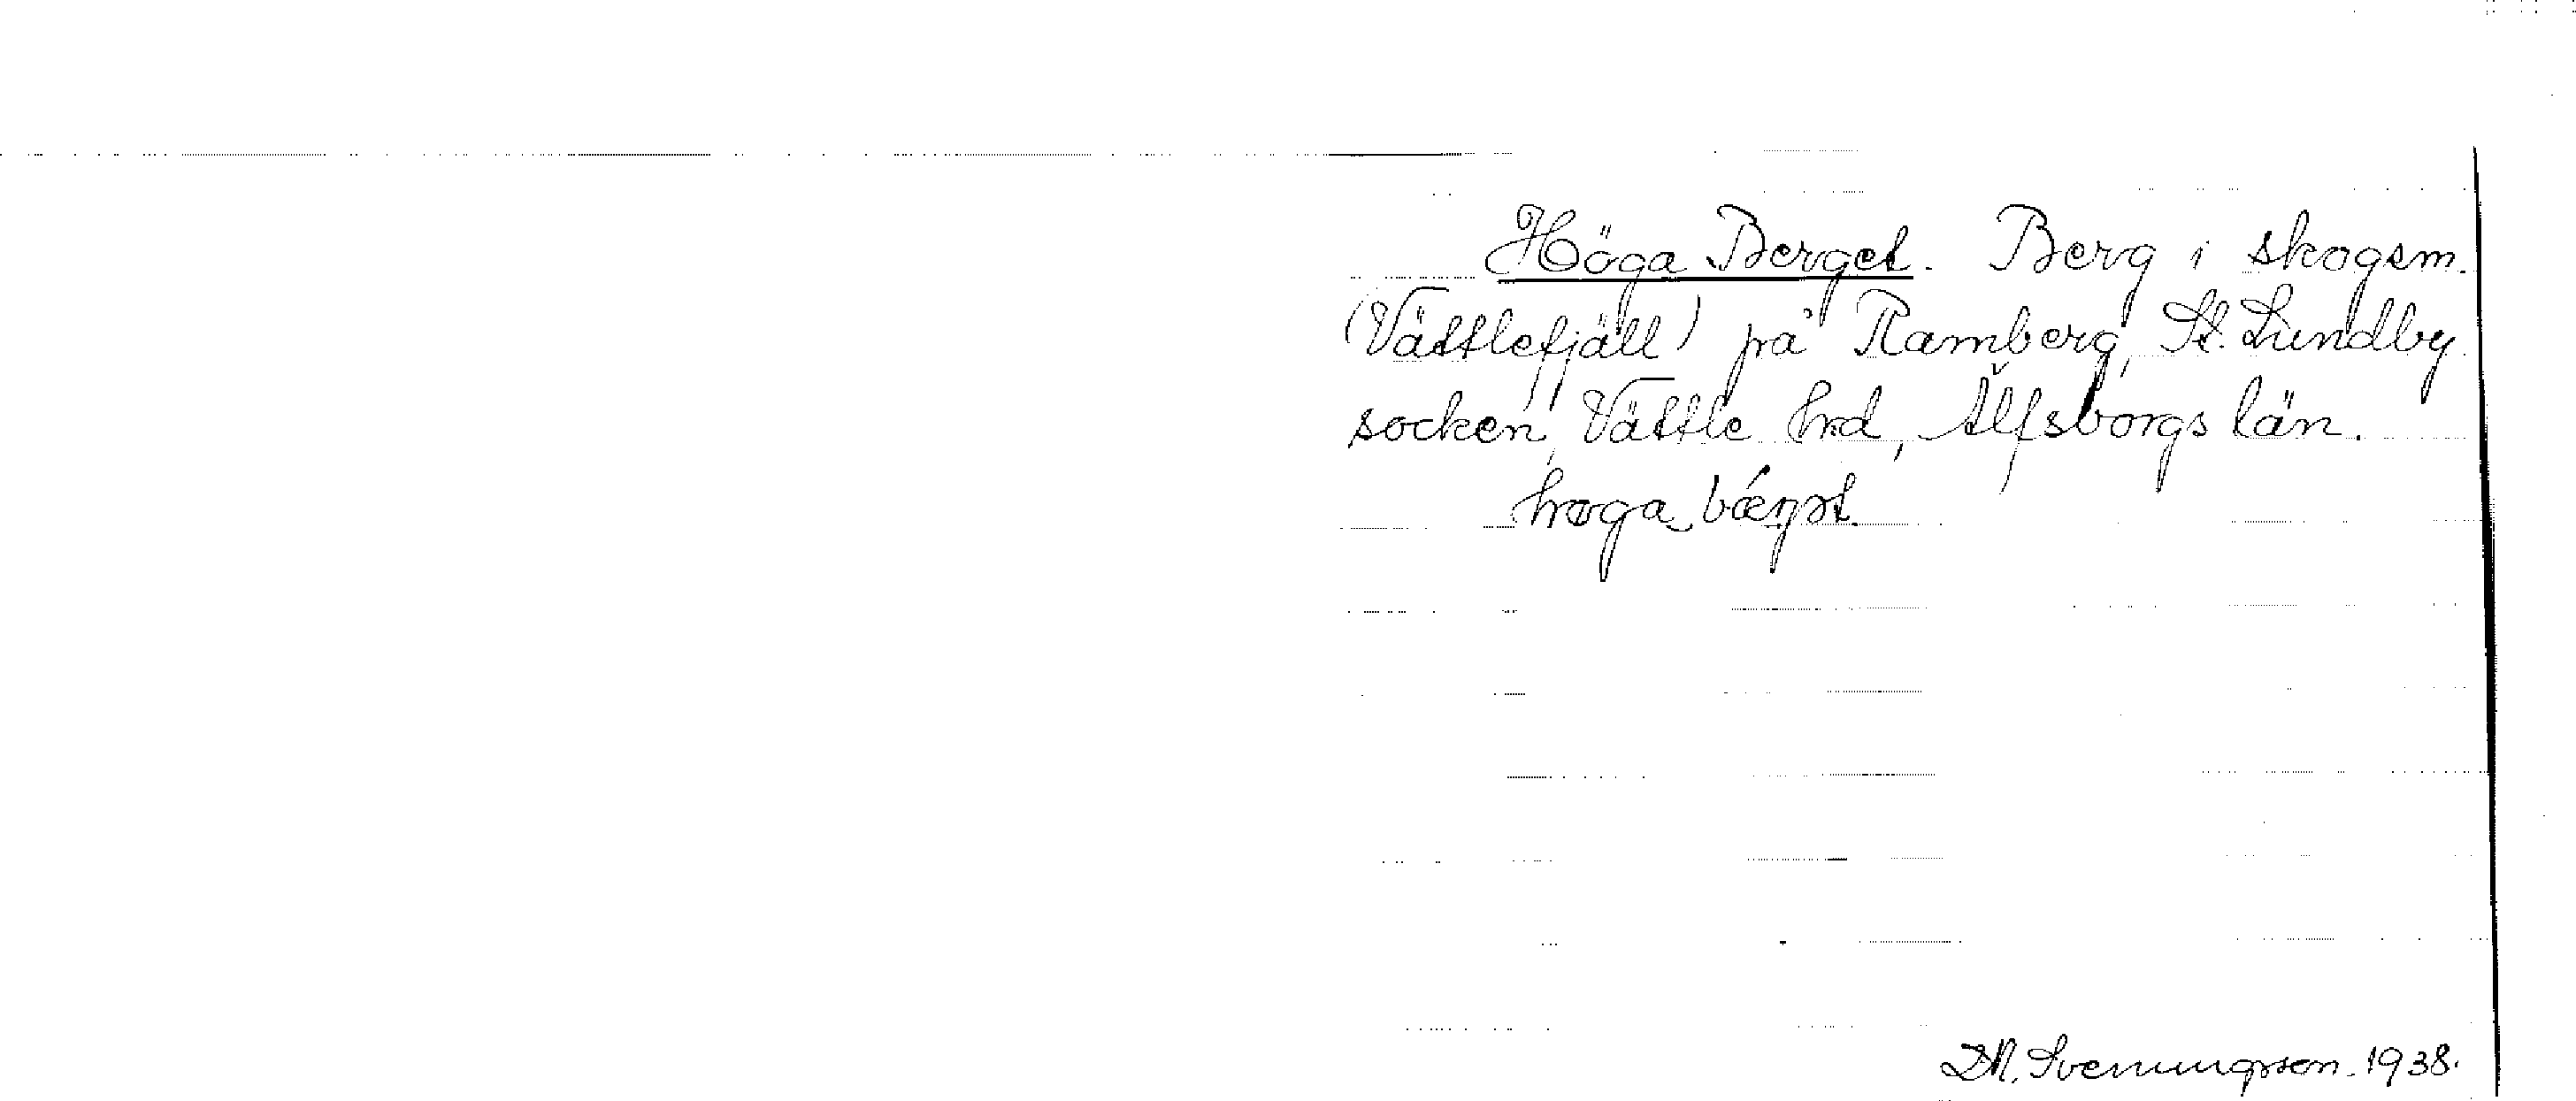 Höga Berget. Berg i skogsm.
(Vättlefjäll) på Ramberg, St. Lundby
socken, Vättle hrd, Älfsborgs län.
høga bǽŋət.
D.N. Svenungsson. 1938.